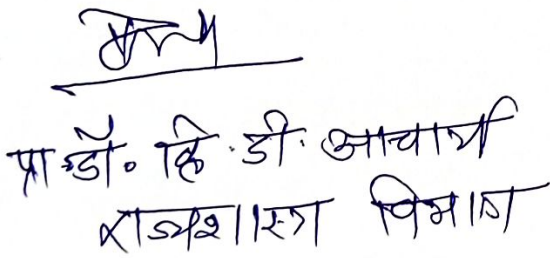 प्रा. डॉ. व्हि. डी. आचार्य
राज्यशास्त्र विभाग